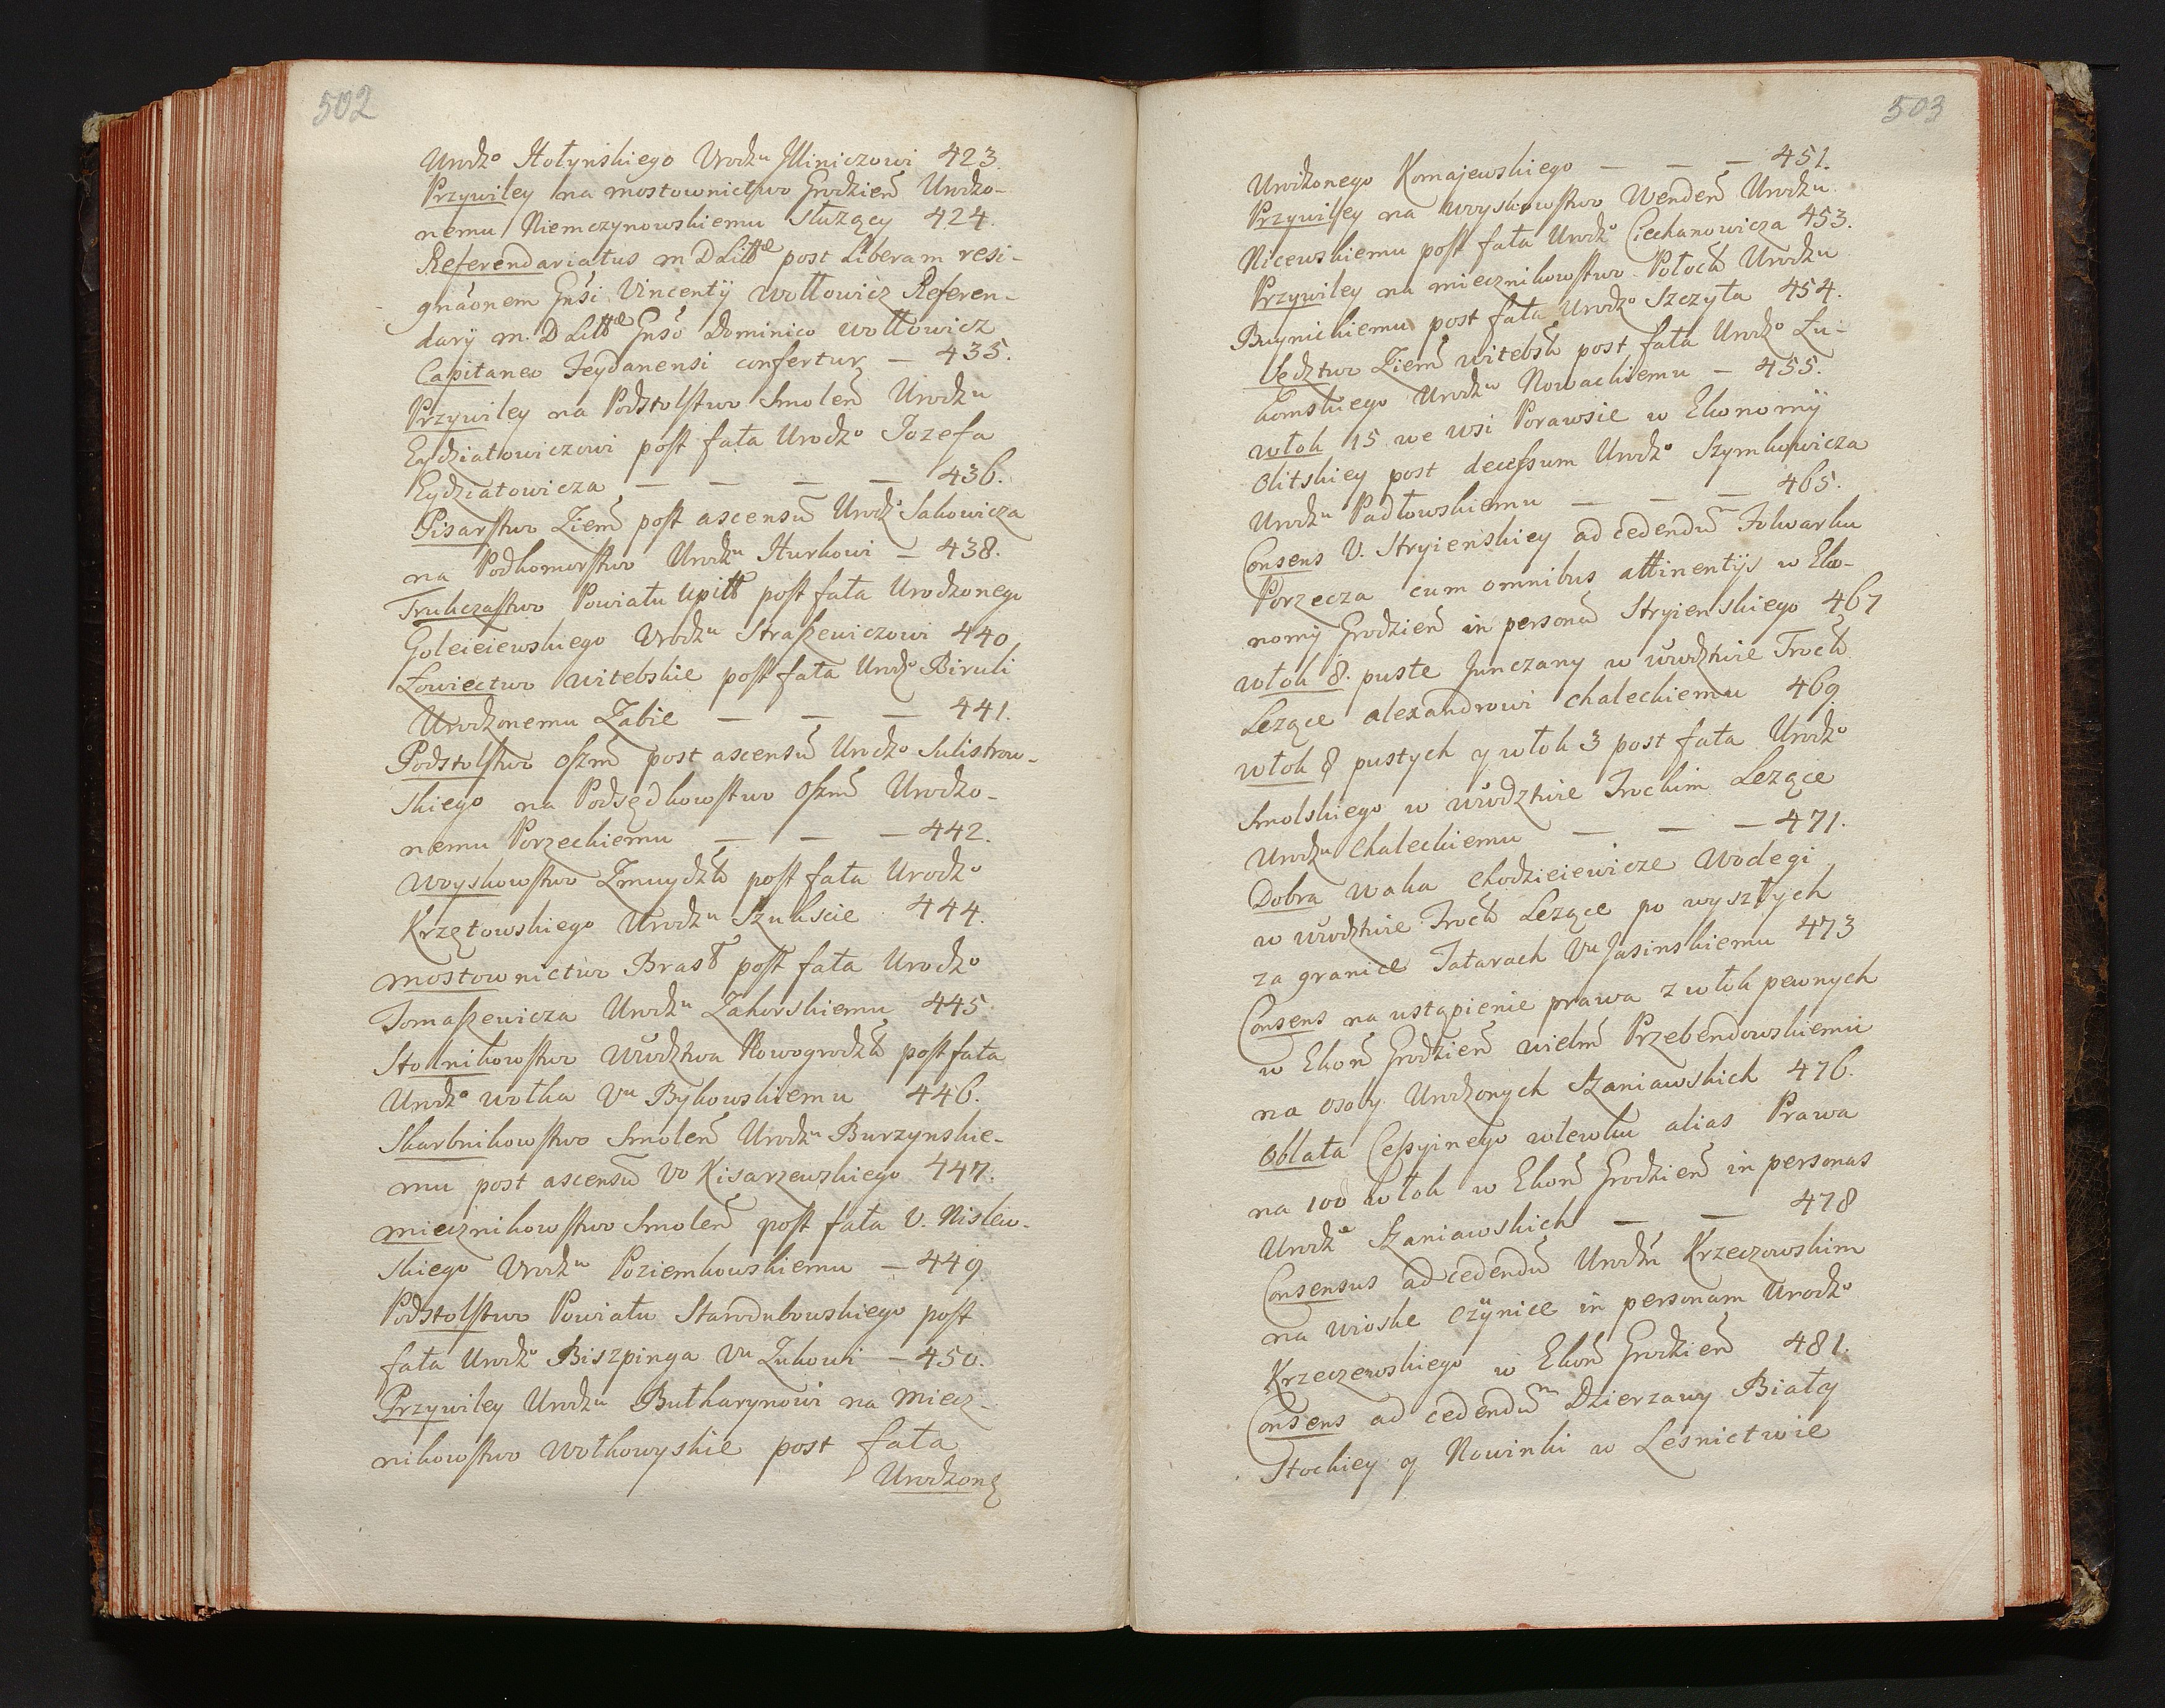 502
Urodzo Hołynskiego Urodzu Illiniczowi 423.
Przywiley na mostownictwo Grodzień Urodzo-
nemu Niemczynowskiemu służący 424.
Referendariatus M D Litt post Liberam resi-
gnaonem Gnsi Vincentij Wołłowicz Referen-
darij M. D Litt Gnso Dominico Wołłowicz
Capitaneo Jeydanensi confertur — 435.
Przywiley na Podstolstwo Smoleń Urodzu
Eydziatowiczowi post fata Urodzo Jozefa
Eydziatowicza — — — — 436.
Pisarstwo Ziem post ascensu Urodz Sakowicza
na Podkomorstwo Urodzu Hurkowi — 438.
Trukczastwo Powiatu Upitt post fata Urodzonego
Goleieiewskiego Urodzu Straszewiczowi 440
Łowiectwo witebskie post fata Urodzo Biruli
Urodzonemu Zabie — — — 441.
Podstolstwo Oszm post ascensu Urodzo Sulistrow-
skiego na Podsędkowstwo Oszm Urodzo-
nemu Porzeckiemu — — — 442.
Woyskowstwo Zmuydzk post fata Urodzo
Krzętowskiego Urodzu Szukscie 444.
mostownictwo Brast post fata Urodzo
Tomaszewicza Urodzu Zahorskiemu 445
Stolnikowstwo Wwdztwa Nowogrodzk post fata
Urodzo wołka Vu Bykowskiemu 446.
Skarbnikowstwo Smoleń Urodzu Burzynskie-
mu post ascensu Vo Kisarzewskiego 447.
miecznikowstwo Smoleń post fata V. Nislew-
skiego Urodzu Poziemkowskiemu — 449
Podstolstwo Powiatu Starodubowskiego post
fata Urodzo Biszpinga Vu Zukowi — 450.
Przywiley Urodzu Butharynowi na Miecz-
nikowstwo Wołkowyskie post fata
Urodzong
503
Urodzonego Komajewskiego — — — 451.
Przywiley na Woyskowstwo Wendeń Urodzu
Nicewskiemu post fata Urodzo Ciechanowicza 453.
Przywiley na miecznikowstwo Połock Urodzu
Buynickiemu post fata Urodzo Szczyta 454.
Sędztwo Ziem witebsk post fata Urodzo Łu-
komskiego Urodzu Nowackiemu — 455.
włok 15 we wsi Porawsie w Ekonomij
Olitskiey post decessum Urodzo Szymkowicza
Urodzu Padłowskiemu — — — 465.
Consens V. Stryienskiey ad cedendum Folwarku
Porzecza cum omnibus attinentijs w Eko-
nomij Grodzień in persona Stryienskiego 467
włok 8. puste Junczany w wwdztwie Trock
Lezące alexandrowi chaleckiemu 469
włok 8 pustych y włok 3 post fata Urodzo
Smolskiego w wwdztwie Trockim Lezące
Urodzu Chaleckiemu — — — 471.
Dobra Waka chodzieiewicze Wodegi
w wwdztwie Trock Lezące po wyszłych
za granice Tatarach Vu Jasinskiemu 473
Consens na ustąpienie prawa z włok pewnych
w Ekoń Grodzień wielm Przebendowskiemu
na osoby Urodzonych Szaniawskich 476.
Oblata Cessyinego wlewku alias Prawa
na 100 Włok w Ekoń Grodzień in personas
Urodz Szaniawskich — — 478
Consensus ad cedendu Urodzu Krzeczowskim
na wioske ezynice in personam Urodzo
Krzeczewskiego w Ekoń Grodzień 481.
Consens ad cedendum Dzierzawy Białey
Stockiey y Nowinki w Lesnictwie